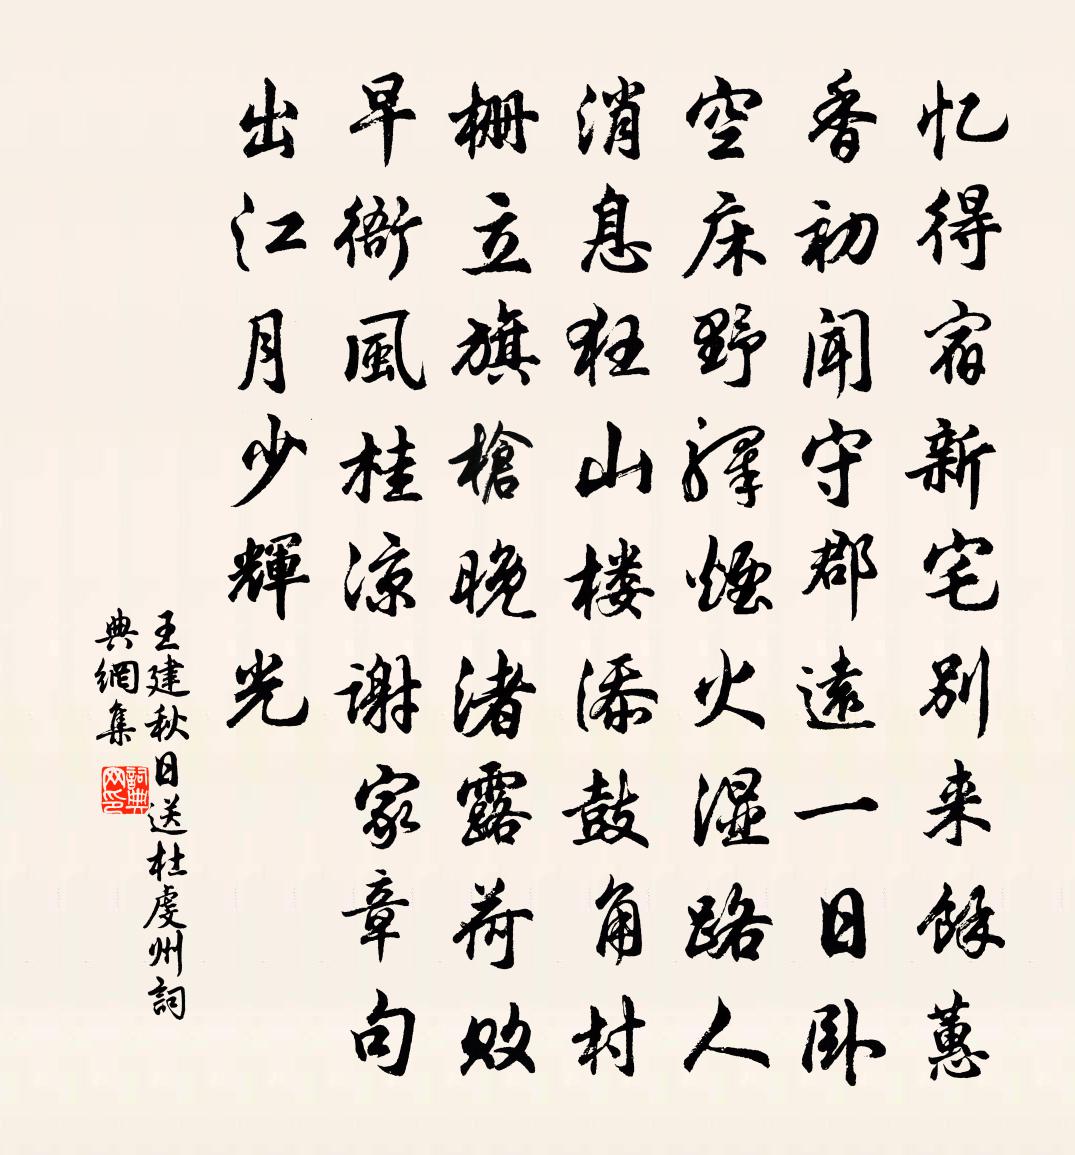 忆得宿新宅别来餘蕙
香初闻守郡遠一日卧
空床野驛煙火湿路人
消息狂山楼添鼓角村
栅立旗槍晚渚露荷败
早衙風桂凉谢家章句
出江月少輝光
王建秋日送杜虔州詞
典網集
詞典
网印